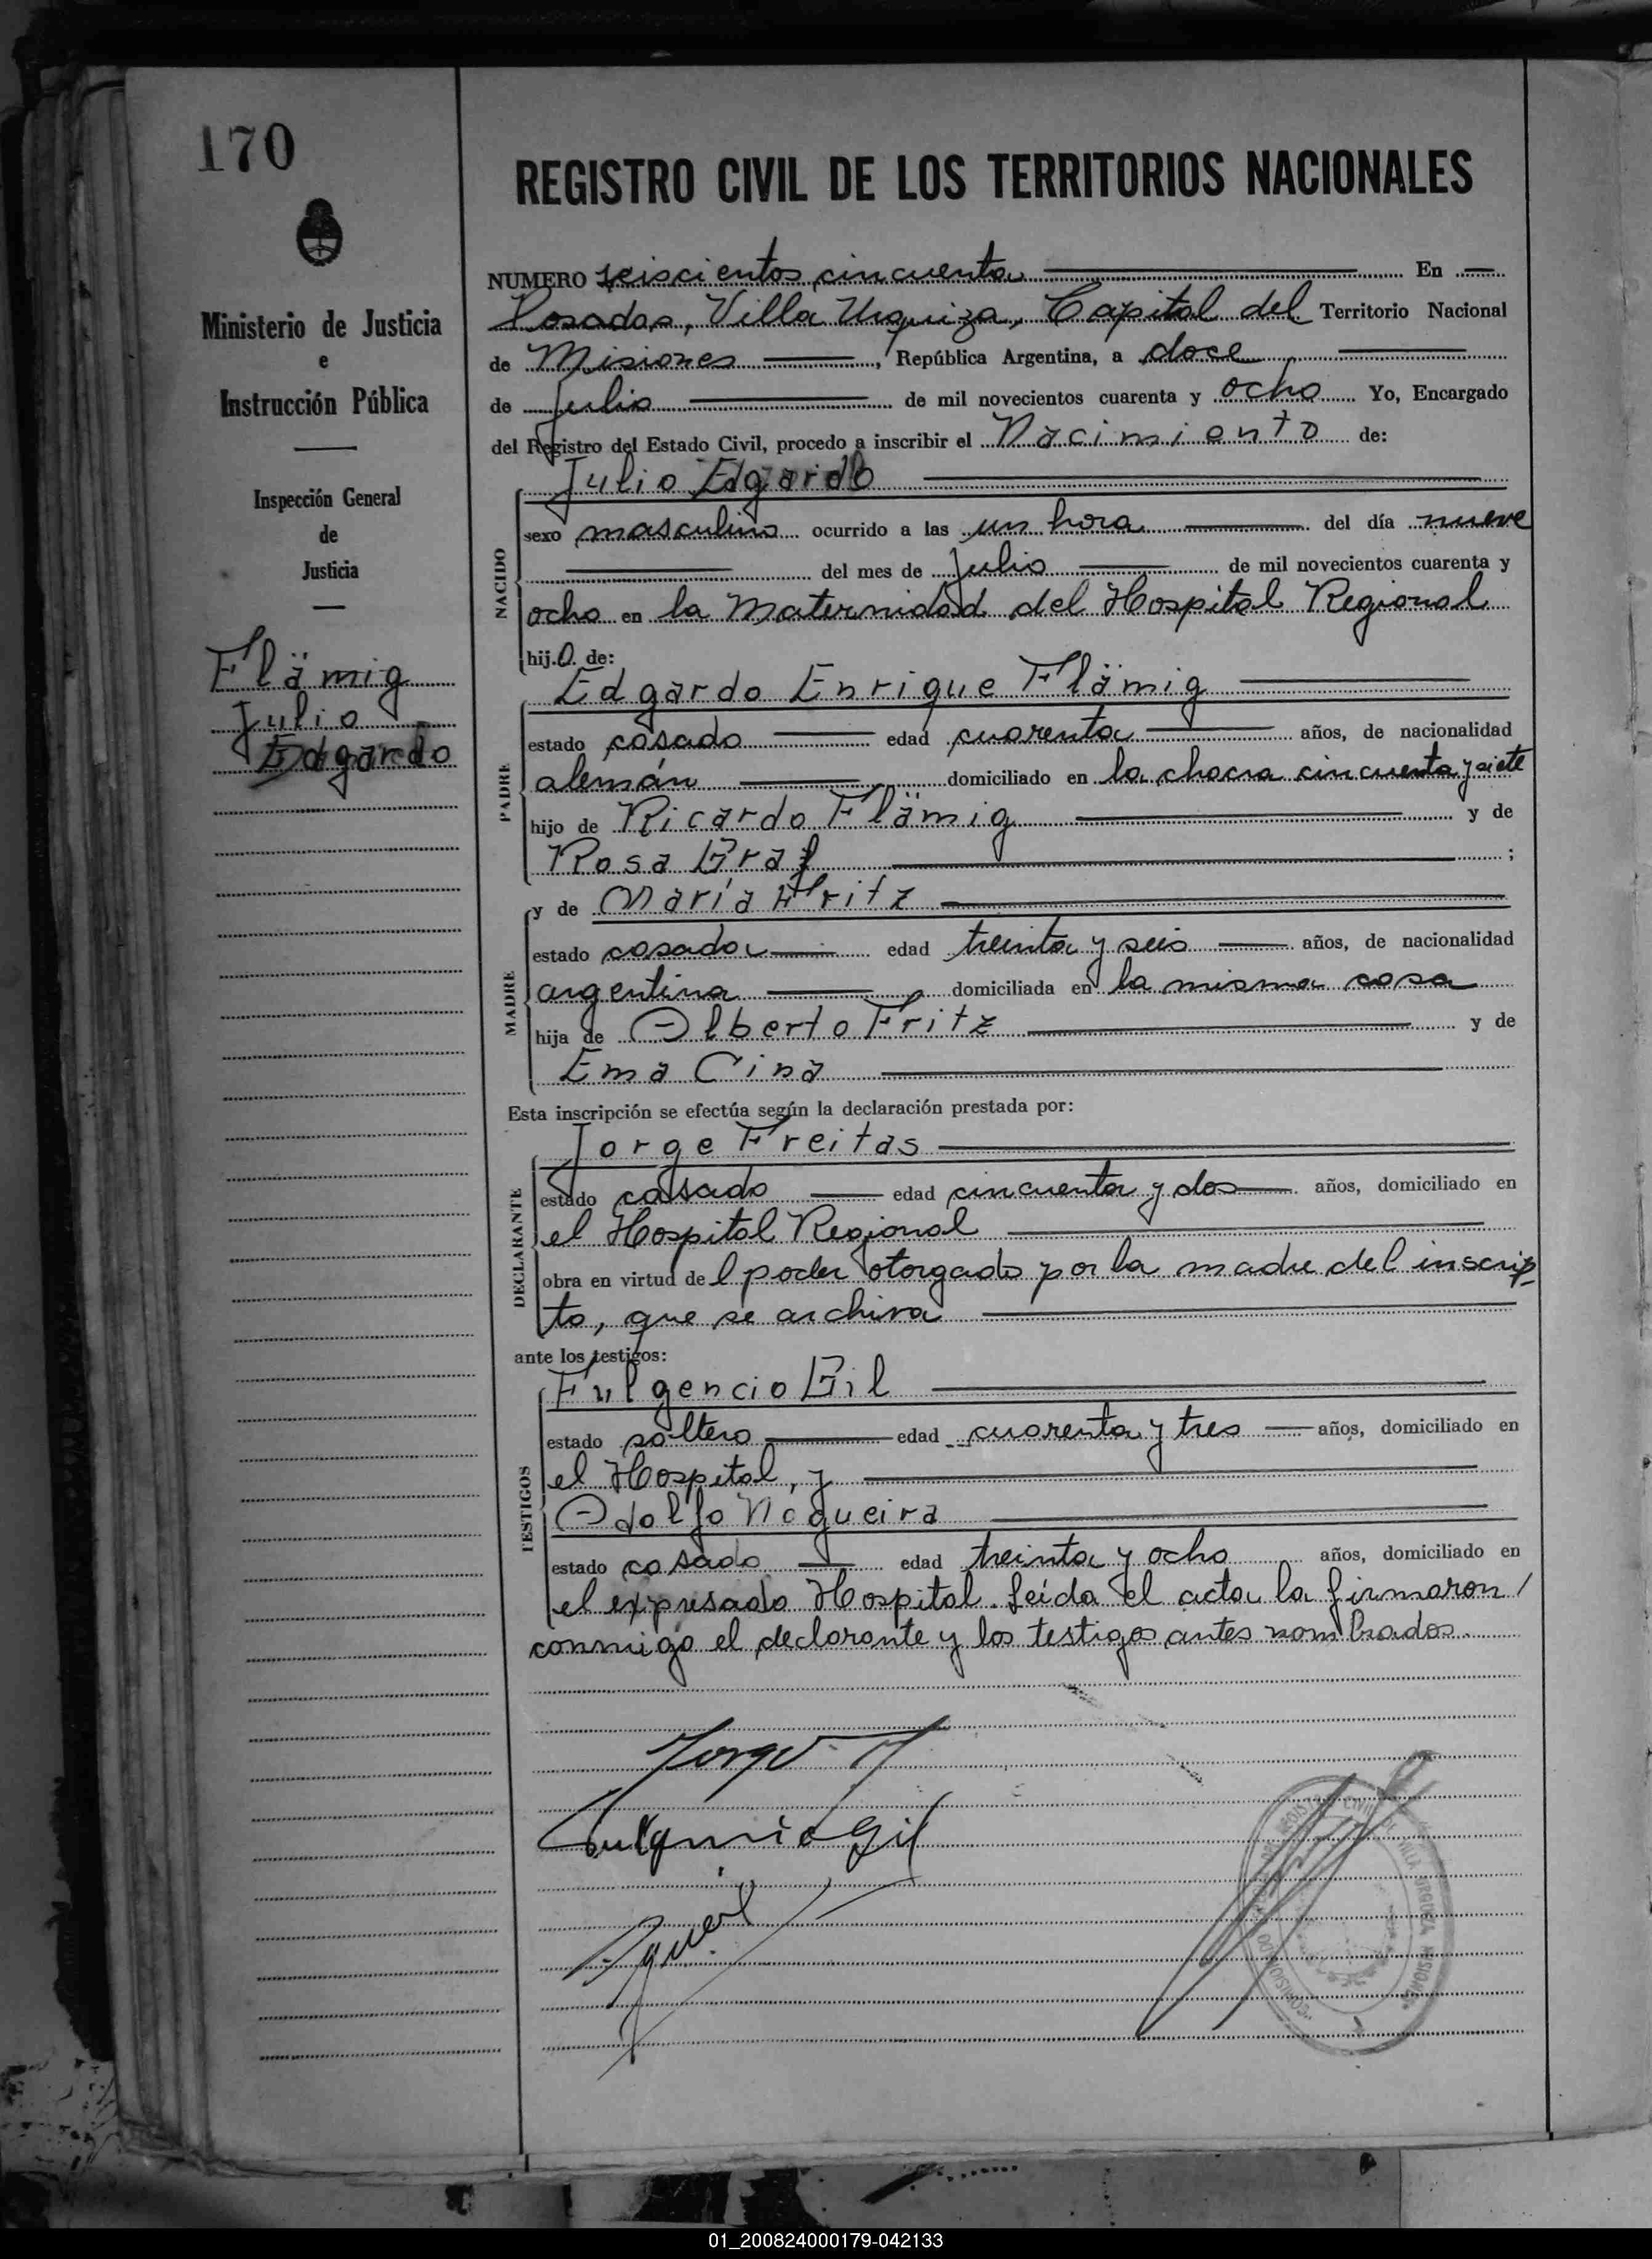 170
Ministerio de Justicia
e
Instrucción Pública
Inspección General
de
Justicia
Flämig
Julio
Edgardo
REGISTRO CIVIL DE LOS TERRITORIOS NACIONALES
NUMERO seiscientos cincuenta En
Posadas, Villa Urquiza, Capital del Territorio Nacional
de Misiones, República Argentina, a doce
de Julio de mil novecientos cuarenta y ocho Yo, Encargado
del Registro del Estado Civil, procedo a inscribir el Nacimiento de:
NACIDO
Julio Edgardo
sexo masculino ocurrido a las un hora del día nueve
del mes de Julio de mil novecientos cuarenta y
ocho en la Maternidad del Hospital Regional
hijo de:
PADRE
Edgardo Enrique Flämig
estado casado edad cuarenta años, de nacionalidad
alemán domiciliado en la chacra cincuenta y siete
hijo de Ricardo Flämig y de
Rosa Graf ;
MADRE
y de María Fritz
estado casada edad treinta y seis años, de nacionalidad
argentina domiciliada en la misma casa
hija de Alberto Fritz y de
Ema Cina
Esta inscripción se efectúa según la declaración prestada por:
DECLARANTE
Jorge Freitas
estado casado edad cincuenta y dos años, domiciliado en
el Hospital Regional
obra en virtud del poder otorgado por la madre del inscrip-
to, que se archiva
ante los testigos:
TESTIGOS
Fulgencio Gil
estado soltero edad cuarenta y tres años, domiciliado en
el Hospital, y
Adolfo Nogueira
estado casado edad treinta y ocho años, domiciliado en
el expresado Hospital. Leída el acta la firmaron /
conmigo el declarante y los testigos antes nombrados.
Jorge
Fulgencio Gil
01_200824000179-042133